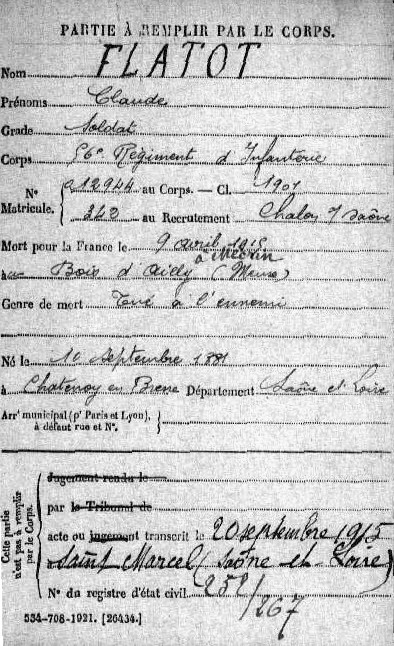 PARTIE À REMPLIR PAR LE CORPS.
Nom FLATOT
Prénoms Claude
Grade Soldat
Corps 56e Régiment d'Infanterie
No Matricule. 012944 au Corps. — Cl. 1901
342 au Recrutement Chalon s/ Saône
Mort pour la France le 9 avril 1915
à Mécrin
à au Bois d'Ailly (Meuse)
Genre de mort Tué à l'ennemi
Né le 10 septembre 1881
à Chatenoy en Bresse Département Saône et Loire
Arrt municipal (pr Paris et Lyon), à défaut rue et No.
Cette partie n'est pas à remplir par le Corps.
Jugement rendu le
par le Tribunal de
acte ou jugement transcrit le 20 septembre 1915
Saint Marcel (Saône et Loire)
No du registre d'état civil 258/267
534-708-1921. [26434.]